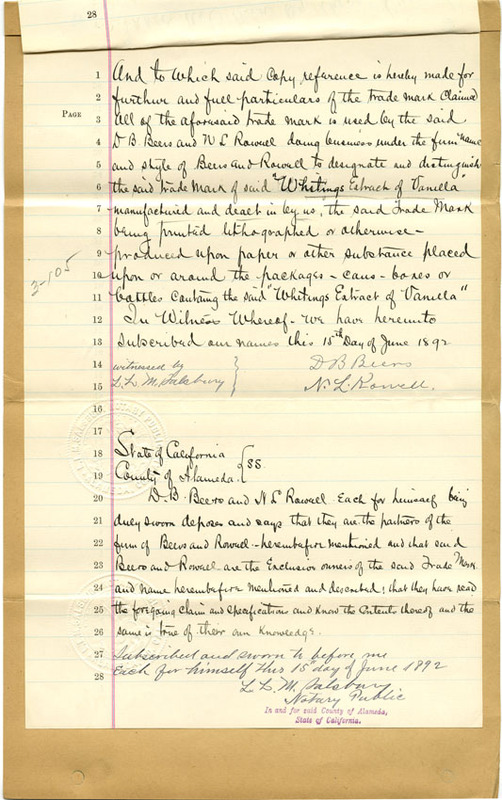 28
PAGE
1 And to Which said Copy reference is hereby made for
2 further and full particulars of the trade mark Claimed
3 all of the aforesaid trade mark is used by the said
4 D B Beers and N L Rowell doing business under the firm name
5 and style of Beers and Rowell to designate and distinguish
6 the said trade Mark of said "Whitings Extract of Vanella"
7 manufactured and dealt in by us, the said Trade Mark
8 being printed lithographed or otherwise -
9 produced upon paper or other substance placed
10 upon or around the - packages - cans - boxes or
3-105
11 bottles containg the said "Whitings Extract of Vanella"
12 In Witness Whereof - We have hereunto
13 Subscribed our names this 15th Day of June 1892
14 witnessed by } D B Beers
15 L. L. M. Salsbury } N. L. Rowell.
16
17
18 State of California } SS.
19 County of Alameda.
20 D. B. Beers and N L Rowell Each for himself being
21 duey sworn deposes and says that they are the partners of the
22 firm of Beers and Rowell - hereinbefore mentioned and that said
23 Beers and Rowell are the Exclusive owners of the said Trade Mark
24 and name hereinbefore Mentioned and described; that they have read
25 the foregoing Claim and Specifications and Know the Contents thereof and the
26 same is true of their own Knowledge.
27 Subscribed and sworn to before me
28 Each for himself this 15" day of June 1892
L. L. M. Salsbury
Notary Public
In and for said County of Alameda,
State of California.